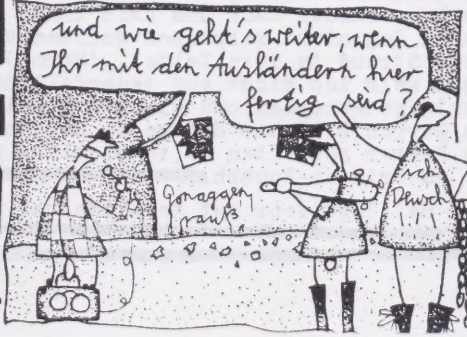 und wie geht's weiter, wenn
Ihr mit den Ausländern hier
fertig seid?
Gonaggen
rauß
ich
Deusch
!!!